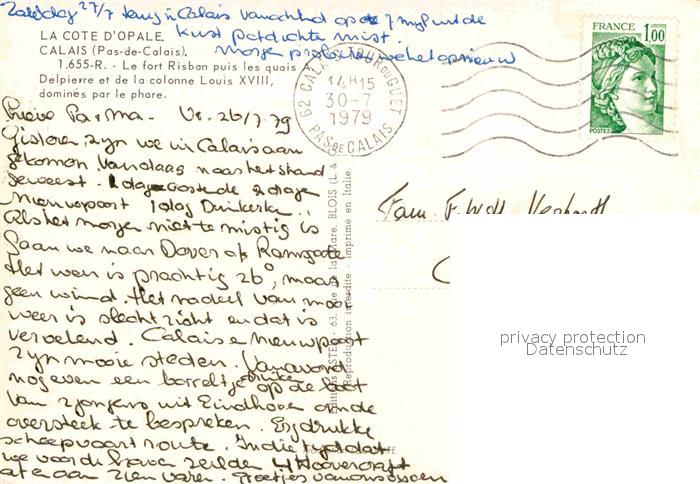 Zaterdag 27/7 terug in Calais vanochtend op 7 mijl uit de
kust potdichte mist.
Morgen proberen we het opnieuw
LA COTE D'OPALE.
CALAIS (Pas-de-Calais).
1.655-R. - Le fort Risban puis les quais A.
Delpierre et de la colonne Louis XVIII,
dominés par le phare.
FRANCE 1,00
POSTES
62 CALAIS
14H15
30-7
1979
PAS DE CALAIS
Lieve Pa Ma. Vr. 26/7.79
Gisteren zijn we in Calais aan
gekomen. Vandaag naar het strand
geweest. 1 dag Oostende 2 dagen
Nieuwpoort 1 dag Duinkerken.
Als het morgen niet te mistig is
gaan we naar Dover of Ramsgate
Het weer is prachtig 26°, maar
geen wind. Het nadeel van mooi
weer is slecht zicht en dat is
vervelend. Calais en Nieuwpoort
zijn mooie steden. Vanavond
nog even een borreltje drinken op de boot
van 2 jongens uit Eindhoven om de
oversteek te bespreken. Erg drukke
scheepvaart route. In die tijd dat
we voor de haven zeilden 4 Hoovercraft
af en aan zien varen. Groetjes van ons
Fam. F.
Reproduction interdite - Imprimé en Italie.
privacy protection
Datenschutz